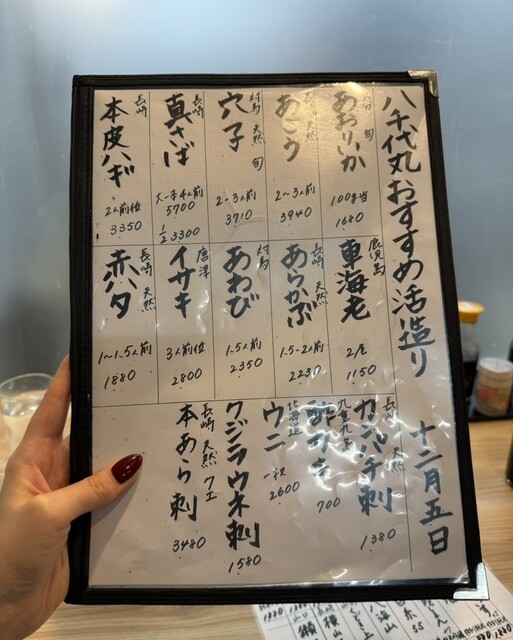 八千代丸おすすめ活造り 十二月五日
旬
あおりいか
100g当
1680
長崎 天然
あこう
2~3人前
3940
対馬 天然 旬
穴子
2~3人前
3710
長崎
真さば
大一本4人前
5700
1/2 3300
長崎
本皮ハギ
2人前位
3350
鹿児島
車海老
2尾
1150
長崎 天然
あらかぶ
1.5~2人前
2230
対馬
あわび
1.5人前
2350
唐津
イサキ
3人前位
2800
長崎 天然
赤ハタ
1~1.5人前
1880
長崎 天然
カンパチ刺
1380
酢ガキ
700
北海道
ウニ
一枚
2600
クジラウネ刺
1580
長崎 天然 クエ
本あら刺
3480